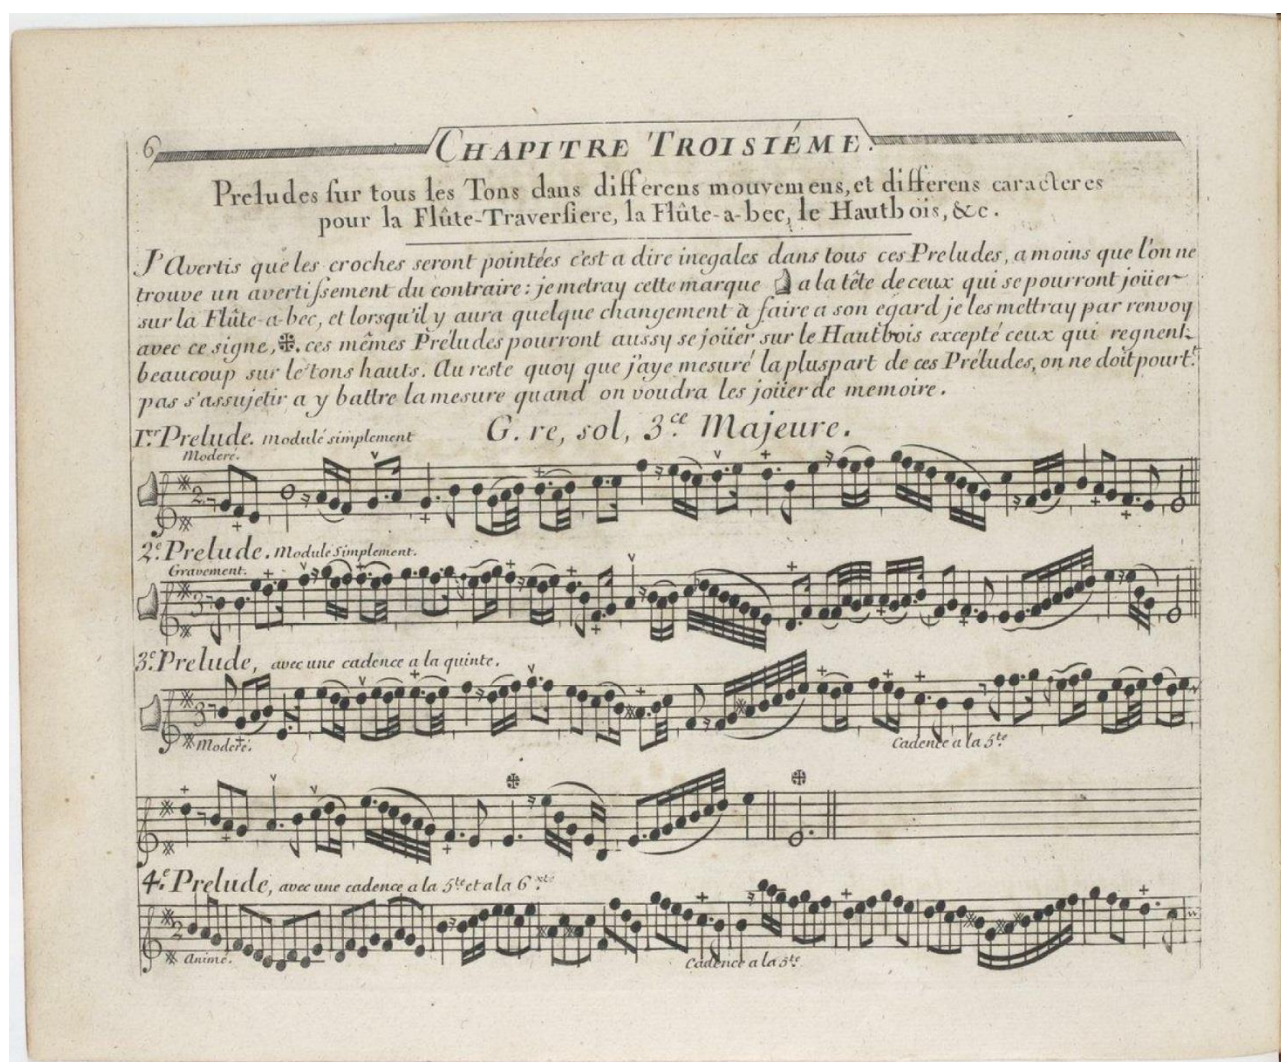 6
CHAPITRE TROISIÉME.
Preludes sur tous les Tons dans differens mouvemens, et differens caracteres
pour la Flûte-Traversiere, la Flûte-a-bec, le Hautbois, &c.
J'Avertis que les croches seront pointées c'est a dire inegales dans tous ces Preludes, a moins que l'on ne
trouve un avertissement du contraire: je metray cette marque a la tête de ceux qui se pourront joüer
sur la Flûte-a-bec, et lorsqu'il y aura quelque changement à faire a son égard je les mettray par renvoy
avec ce signe, ✠. ces mêmes Préludes pourront aussy se joüer sur le Hautbois excepté ceux qui regnent
beaucoup sur le tons hauts. Au reste quoy que j'aye mesuré la pluspart de ces Préludes, on ne doit pourt.t
pas s'assujetir a y battre la mesure quand on voudra les joüer de memoire.
1.er Prelude. Modulé simplement G. re, sol, 3.ce Majeure.
Moderé.
2
2.e Prelude. Modulé simplement.
Gravement.
3
3.e Prelude, avec une cadence a la quinte.
3
Moderé.
Cadence a la 5.te
4.e Prelude, avec une cadence a la 5.te et a la 6.xte
2
Animé.
Cadence a la 5.te